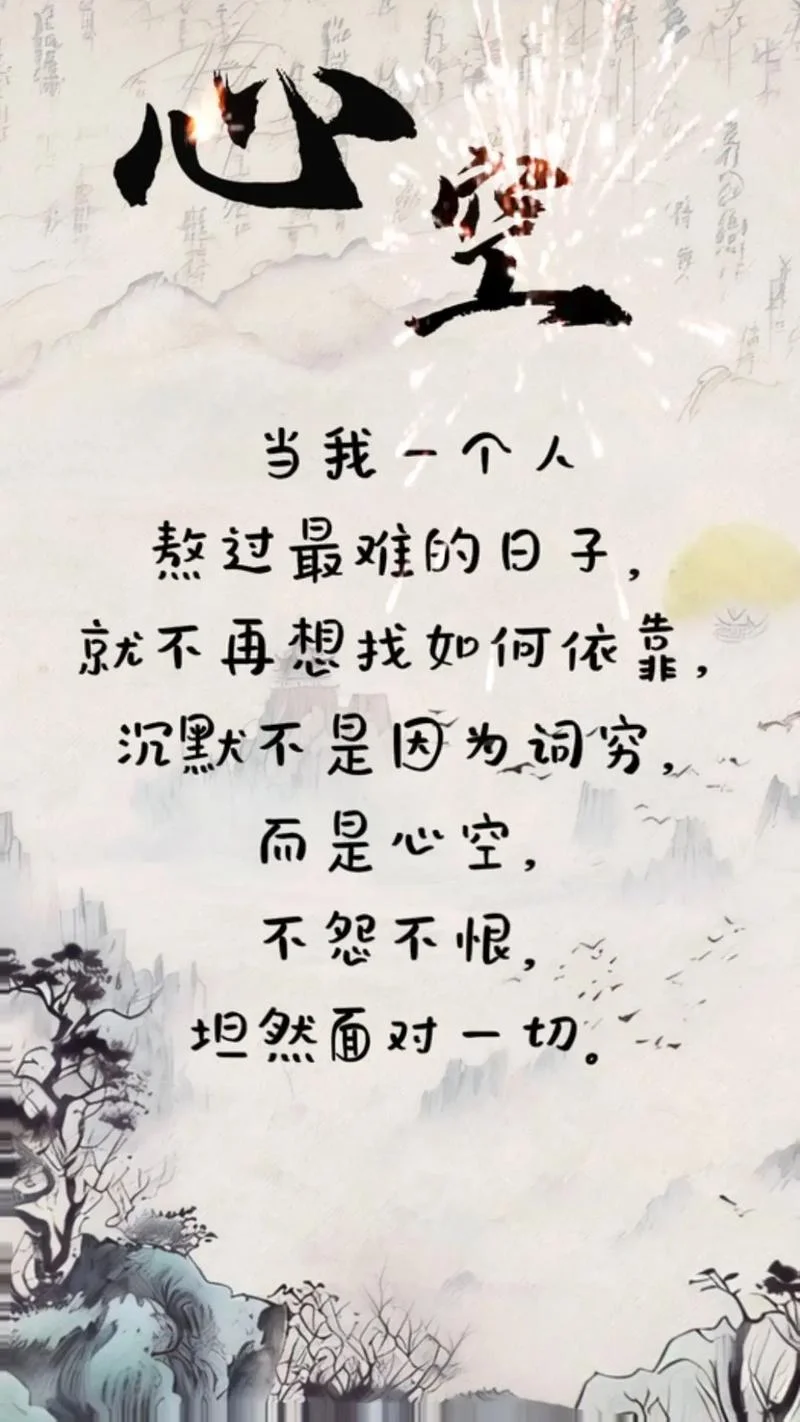 心空
当我一个人
熬过最难的日子，
就不再想找如何依靠，
沉默不是因为词穷，
而是心空，
不怨不恨，
坦然面对一切。